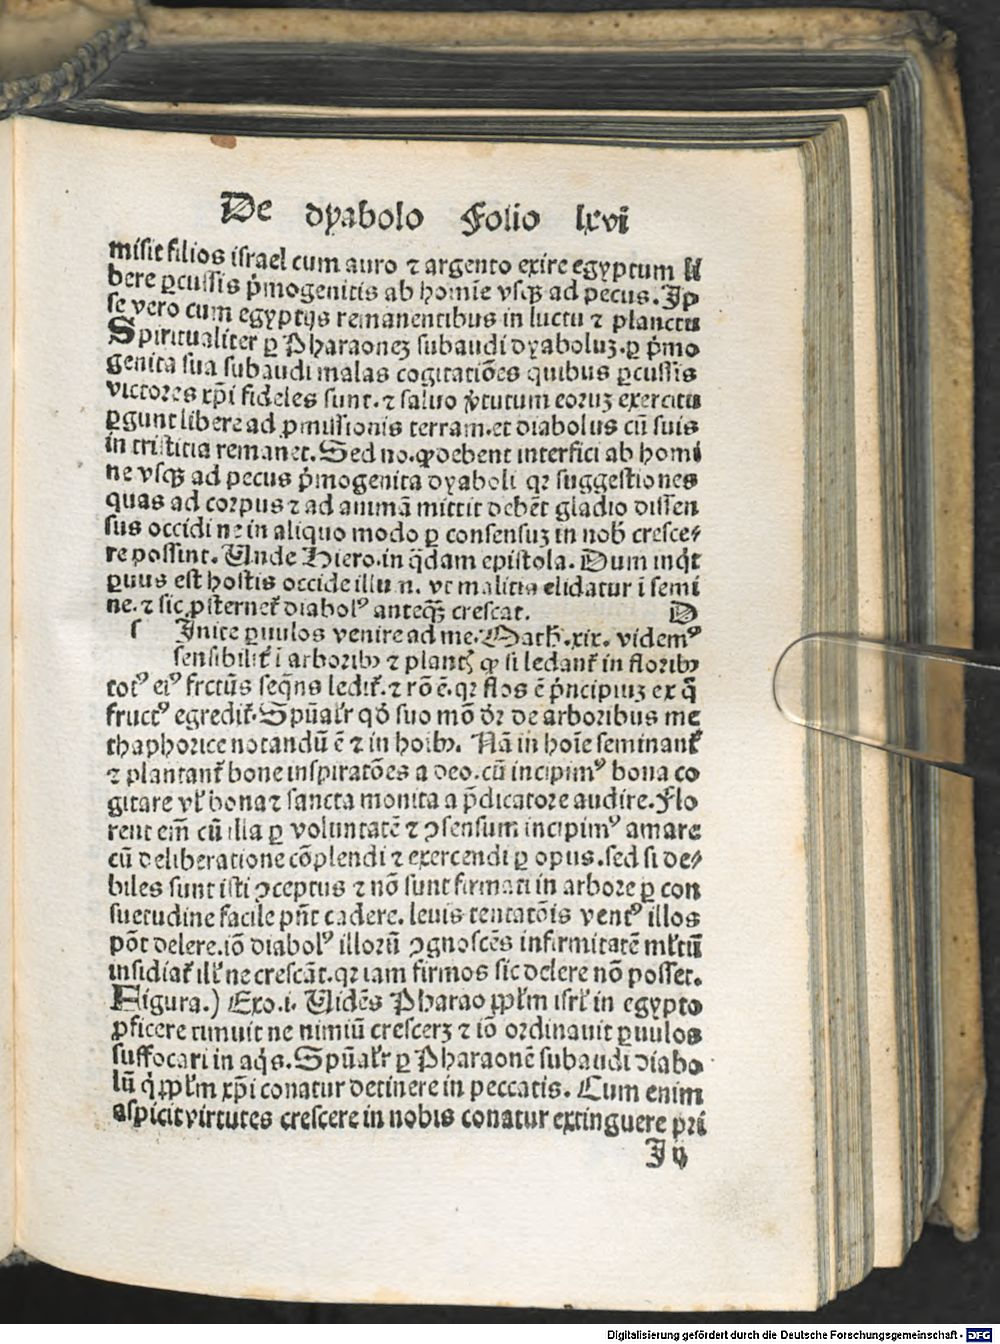 De dyabolo Folio lxvi
misit filios israel cum auro ⁊ argento exire egyptum li
bere ꝑcussis p̄mogenitis ab homīe vsqꝫ ad pecus. Ip
se vero cum egyptijs remanentibus in luctu ⁊ planctu
Spiritualiter ꝑ Pharaoneꝫ subaudi dyaboluꝫ. ꝑ p̄mo
genita sua subaudi malas cogitatiões quibus ꝑcussis
victores xp̄i fideles sunt. ⁊ saluo v̓tutum eoruꝫ exercitu
ꝑgunt libere ad ꝓmissionis terram. et diabolus cū suis
in tristitia remanet. Sed no. ꝙ debent interfici ab homi
ne vsqꝫ ad pecus p̄mogenita dyaboli qꝛ suggestiones
quas ad corpus ⁊ ad animā mittit debēt gladio dissen
sus occidi ne in aliquo modo ꝑ consensuꝫ in nob̄ cresce⸗
re possint. Unde Hiero. in q̄dam epistola. Dum inq̄t
ꝑuus est hostis occide illum. vt malitia elidatur ī semi
ne. ⁊ sic ꝓsternet᷑ diabolꝰ anteqꝫ crescat. D
s Inite ꝑuulos venire ad me. Math. xix. videmꝰ
sensibilit᷑ ī arboribꝫ ⁊ plantꝭ ꝙ si ledant᷑ in floribꝫ
totꝰ eiꝰ frctūs seqn̄s ledit᷑. ⁊ rō ē. qꝛ flos ē p̄ncipiuꝫ ex q̄
fructꝰ egredit᷑. Spūal̓r qd̓ suo mō dr̄ de arboribus me
thaphorice notandū ē ⁊ in hoībꝫ. Nā in hoīe seminant᷑
⁊ plantant᷑ bone inspiratões a deo. cū incipimꝰ bona co
gitare vl̓ bona ⁊ sancta monita a p̄dicatore audire. Flo
rent em̄ cū illa ꝑ voluntatē ⁊ ꝯsensum incipimꝰ amare
cū deliberatione cōplendi ⁊ exercendi ꝑ opus. sed si de⸗
biles sunt isti ꝯceptus ⁊ nō sunt firmati in arbore ꝑ con
suetudine facile pn̄t cadere. leuis tentatōis ventꝰ illos
pōt delere. iō diabolꝰ illorū ꝯgnoscēs infirmitatē ml̓tū
insidiat᷑ ill̓ ne crescāt. qꝛ iam firmos sic delere nō posset.
Figura.) Exo. i. Uidēs Pharao ppl̓m isrl̓ in egypto
ꝓficere timuit ne nimiū crescerꝫ ⁊ iō ordinauit ꝑuulos
suffocari in aq̄s. Spūal̓r ꝑ Pharaonē subaudi diabo
lū q̓ ppl̓m xp̄i conatur detinere in peccatis. Cum enim
aspicit virtutes crescere in nobis conatur extinguere pri
I ij
Digitalisierung gefördert durch die Deutsche Forschungsgemeinschaft - DFG